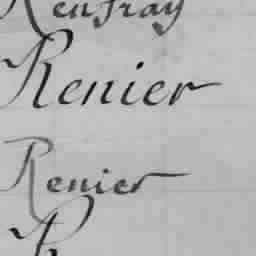 Renfray
Renier
Renier